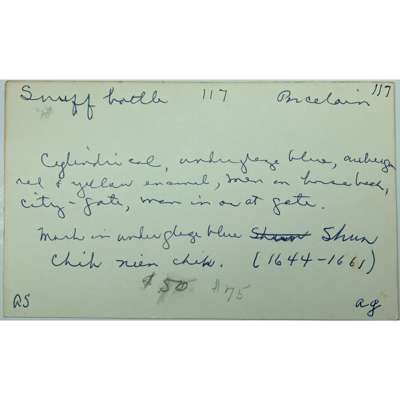 Snuff bottle 117 Porcelain 117
Cylindrical, underglaze blue, aubergine
red & yellow enamel, men on horseback,
city-gate, man in or at gate.
Mark in underglaze blue Shun
Chih nien chih. (1644-1661)
$50 $75
RS ag